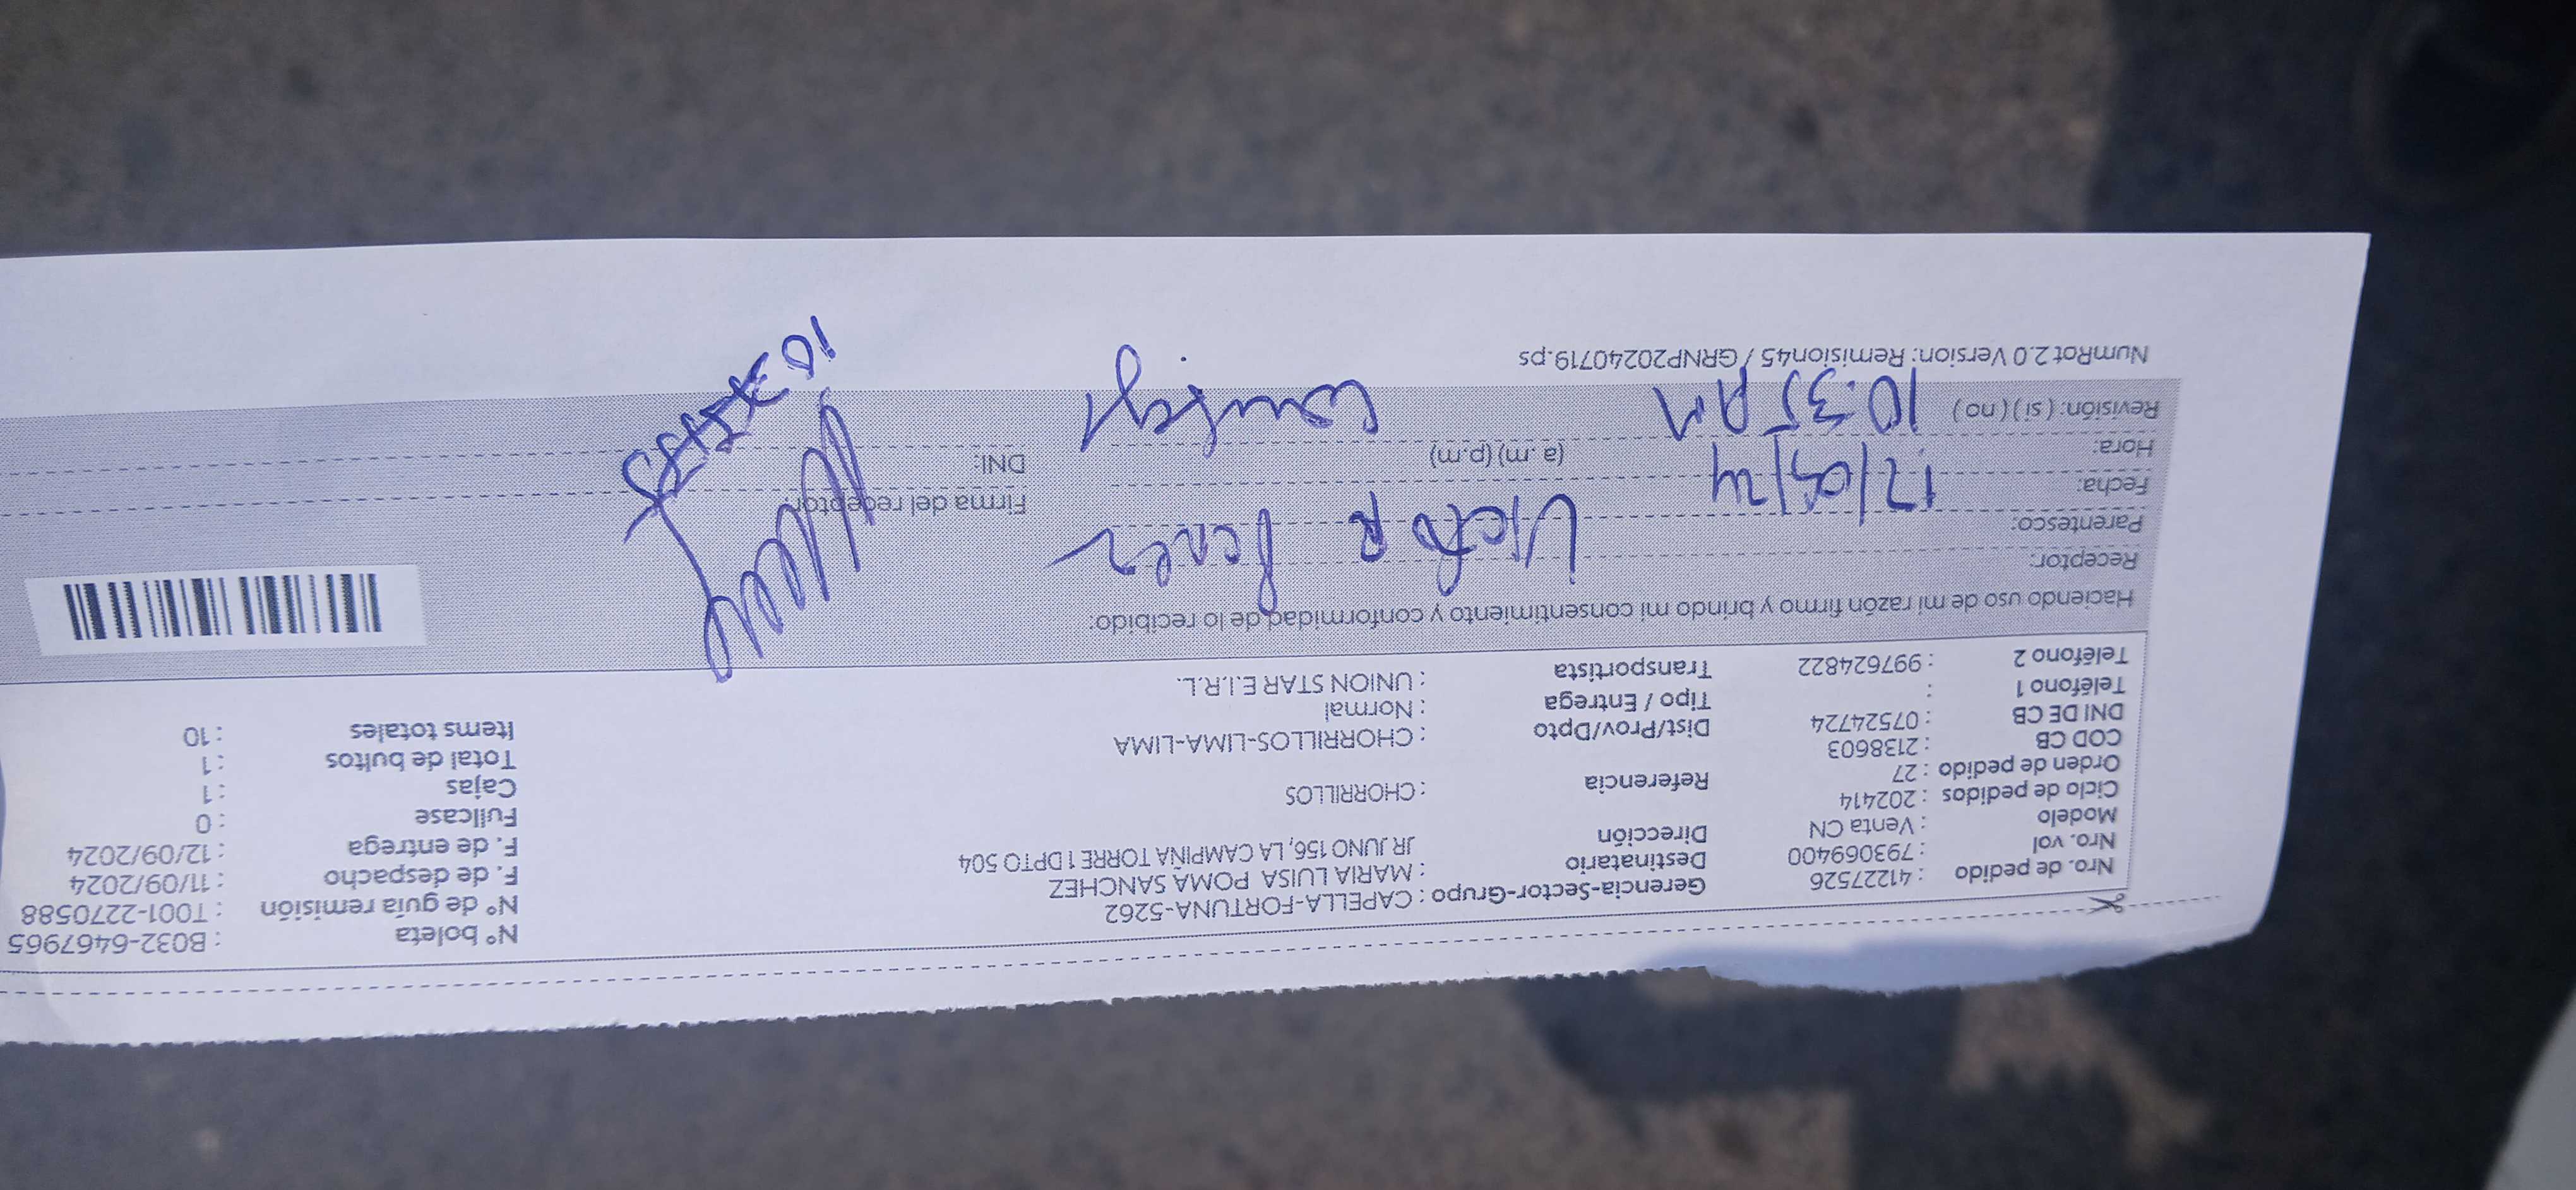 Nro. de pedido : 41227526 Gerencia-Sector-Grupo : CAPELLA-FORTUNA-5262 N° boleta : B032-6467965
Nro. vol : 793069400 Destinatario : MARIA LUISA POMA SANCHEZ N° de guía remisión : T001-2270588
Modelo : Venta CN Dirección JR JUNO 156, LA CAMPIÑA TORRE 1 DPTO 504 F. de despacho : 11/09/2024
Ciclo de pedidos : 202414 F. de entrega : 12/09/2024
Orden de pedido : 27 Referencia : CHORRILLOS Fullcase : 0
COD CB : 2138603 Cajas : 1
DNI DE CB : 07524724 Dist/Prov/Dpto : CHORRILLOS-LIMA-LIMA Total de bultos : 1
Teléfono 1 : Tipo / Entrega : Normal Items totales : 10
Teléfono 2 : 997624822 Transportista : UNION STAR E.I.R.L.
Haciendo uso de mi razón firmo y brindo mi consentimiento y conformidad de lo recibido:
Receptor: Victor
Parentesco:
Fecha: 12/09/24 Firma del receptor:
Hora: (a.m) (p.m) DNI:
Revisión: ( si ) ( no ) 10:35 AM
NumRot 2.0 Version: Remision45 / GRNP20240719.ps